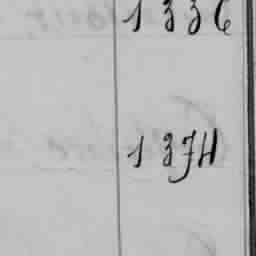 1336
1374